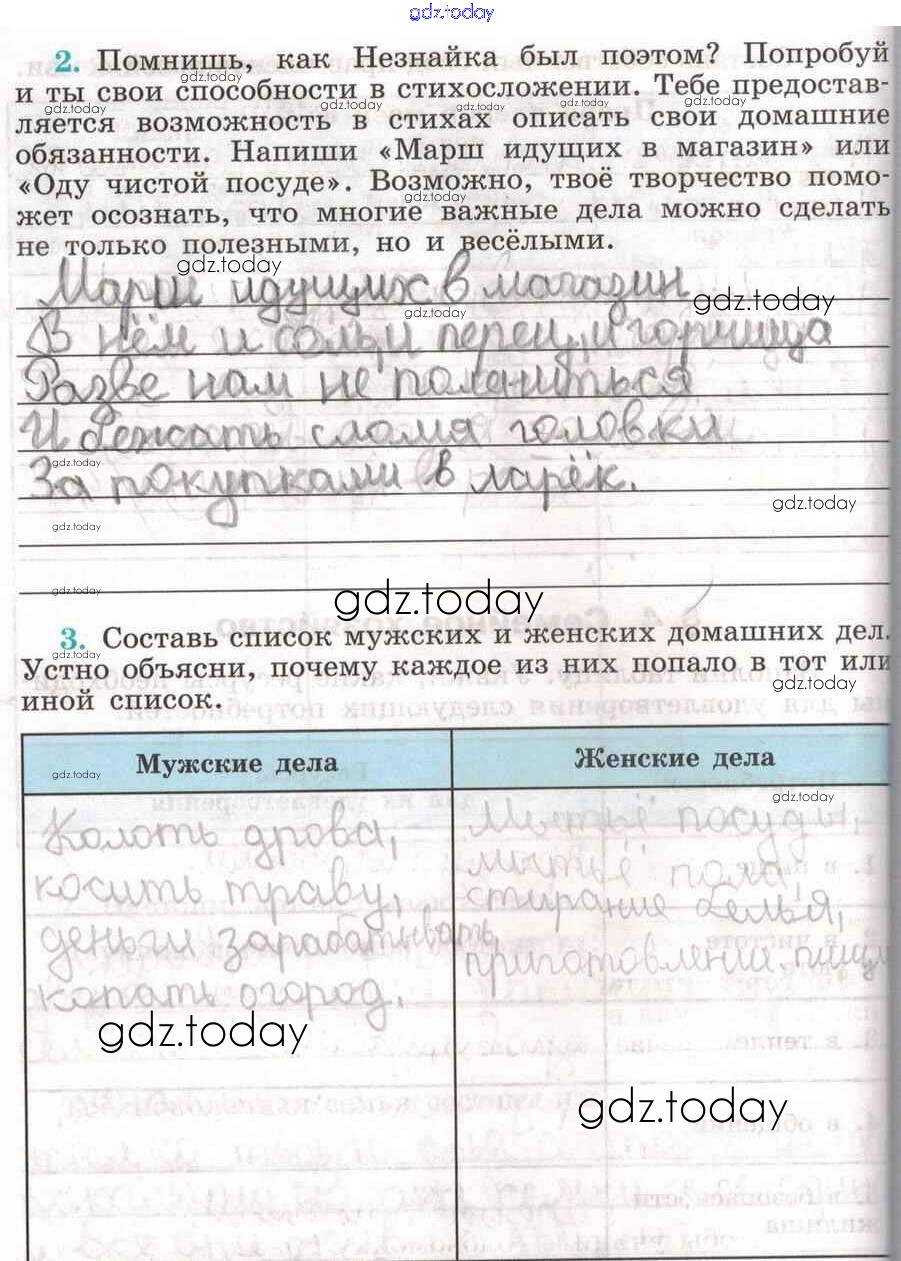 gdz.today
2. Помнишь, как Незнайка был поэтом? Попробуй
gdz.today
и ты свои способности в стихосложении. Тебе предостав-
gdz.today gdz.today gdz.today gdz.today
ляется возможность в стихах описать свои домашние
обязанности. Напиши «Марш идущих в магазин» или
«Оду чистой посуде». Возможно, твоё творчество помо-
gdz.today
жет осознать, что многие важные дела можно сделать
не только полезными, но и весёлыми.
gdz.today
Марш идущих в магазин
gdz.today
gdz.today
В нём и соль, и перец, и горчица
Разве нам не поляниться
И бежать сломя головки
gdz.today
За покупками в ларёк.
gdz.today
gdz.today
gdz.today
gdz.today
3. Составь список мужских и женских домашних дел.
gdz.today
Устно объясни, почему каждое из них попало в тот или
gdz.today
иной список.
Мужские дела Женские дела
gdz.today
gdz.today
Колоть дрова, Мытьё посуды,
косить траву, мытьё пола
деньги зарабатывать стирание белья,
копать огород. приготовлении пищи
gdz.today
gdz.today